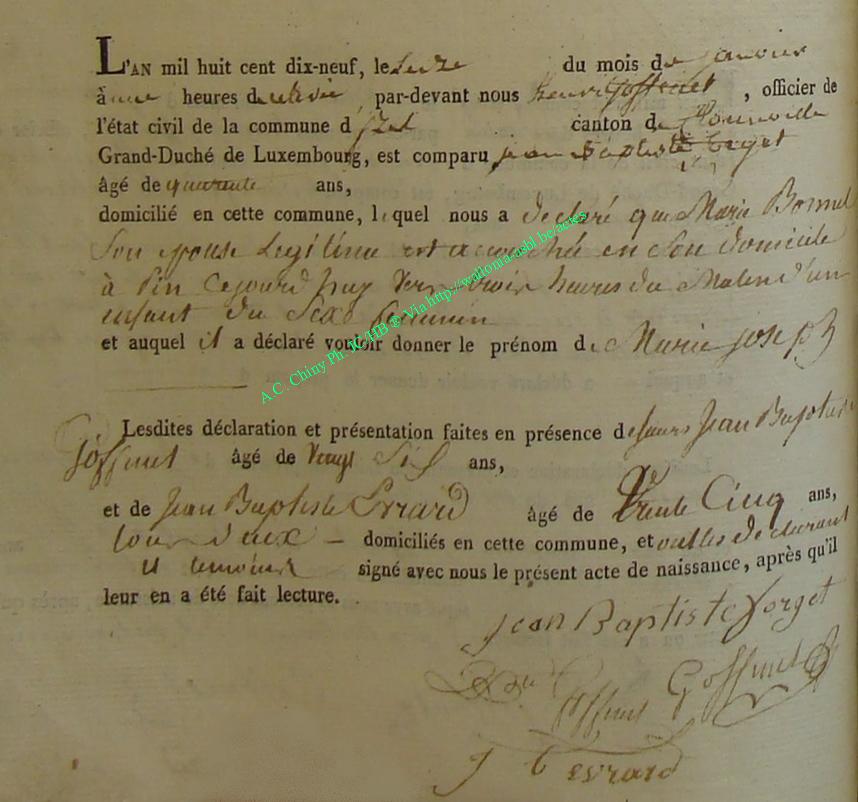 L'AN mil huit cent dix-neuf, le Seize du mois de janvier
à une heures de relevée, par-devant nous henri goffinet, officier de
l'état civil de la commune d'izel canton de florenville
Grand-Duché de Luxembourg, est comparu jean Baptiste forget
âgé de quarante ans,
domicilié en cette commune, lequel nous a declaré que Marie Bonnel
Son epouse Legitime est accouchée en Son domicile
à Pin Cejourd'huy vers trois heures du Matin d'un
enfant du Sexe feminin
et auquel il a déclaré vouloir donner le prénom de Marie joseph
Lesdites déclaration et présentation faites en présence de Jean Baptiste
Goffinet âgé de Vingt Six ans,
et de Jean Baptiste Evrard âgé de trente Cinq ans,
tous deux domiciliés en cette commune, et ont les declarant
et temoins signé avec nous le présent acte de naissance, après qu'il
leur en a été fait lecture.
jean Baptiste forget
Goffinet Goffinet
j b evrard
A.C. Chiny Ph. IC/HB ® Via http://wallonia-asbl.be/actes